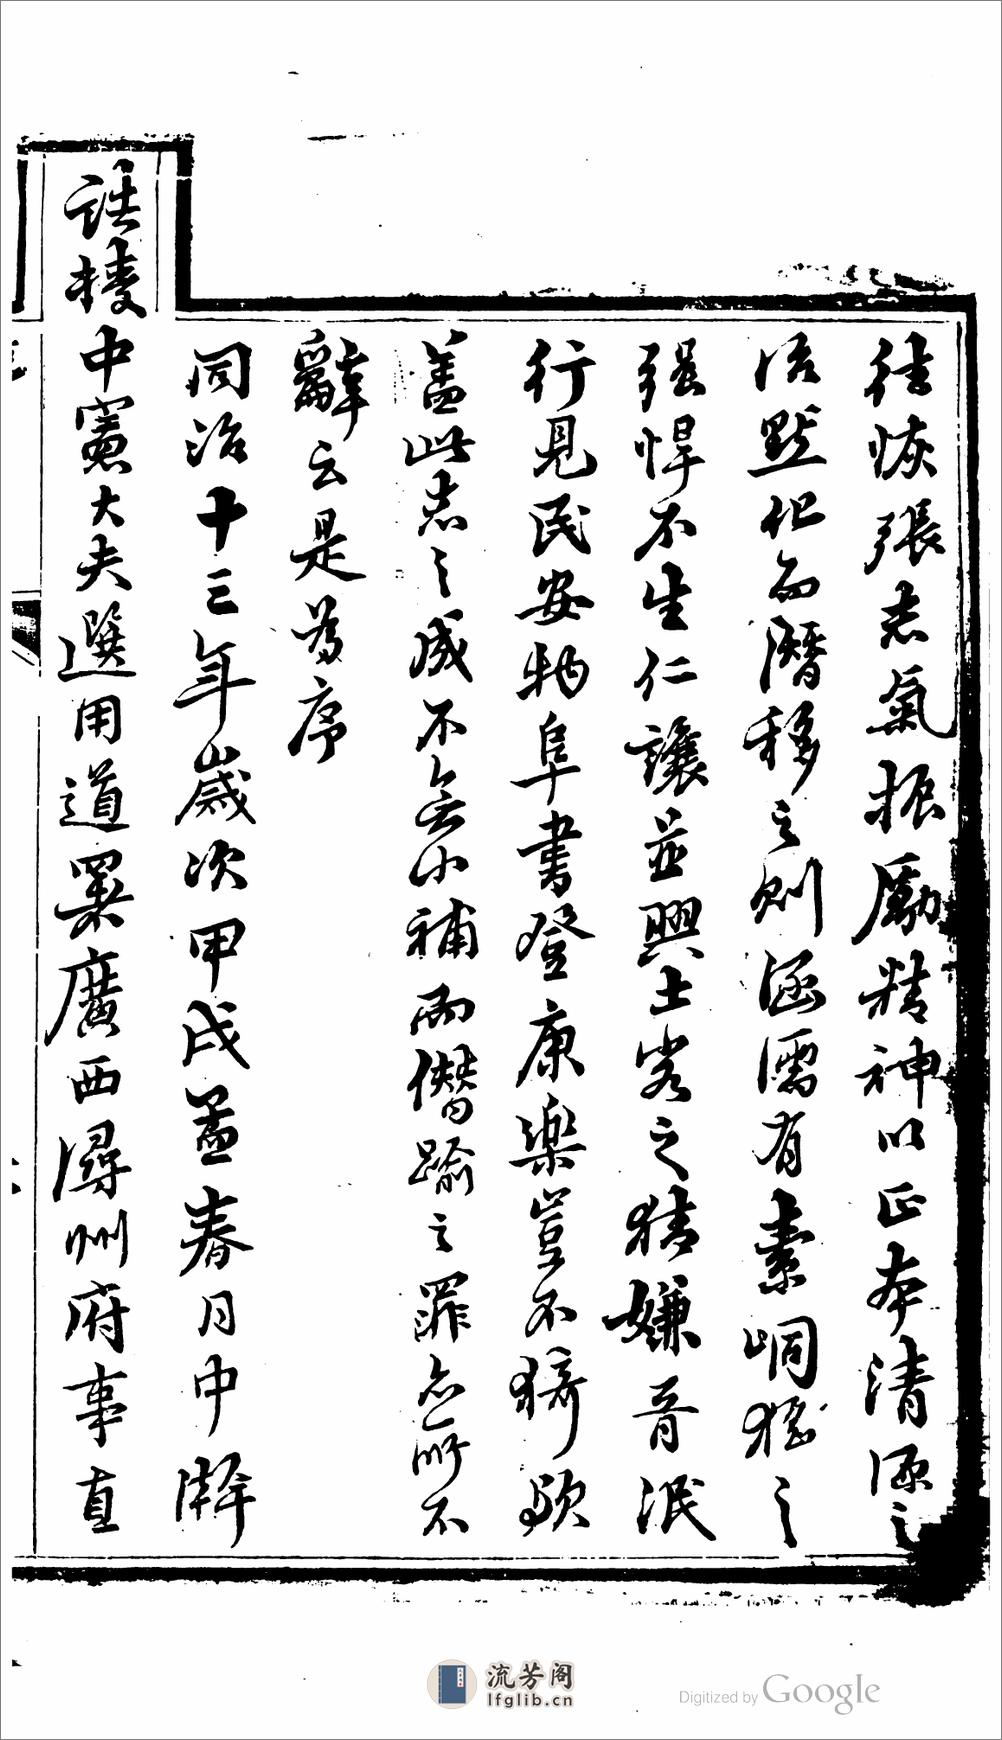 往恢張志氣振勵精神以正本清源之
治默化而潛移之則涵濡有素峒猺之
强悍不生仁讓並興土客之猜嫌胥泯
行見民安物阜書登康樂豈不猗歟
蓋此志之成不無小補而僭踰之罪亦所不
辭云是爲序
同治十三年歲次甲戌孟春月中澣
誥授中憲大夫選用道署廣西潯州府事直
流芳阁
lfglib.cn
Digitized by Google